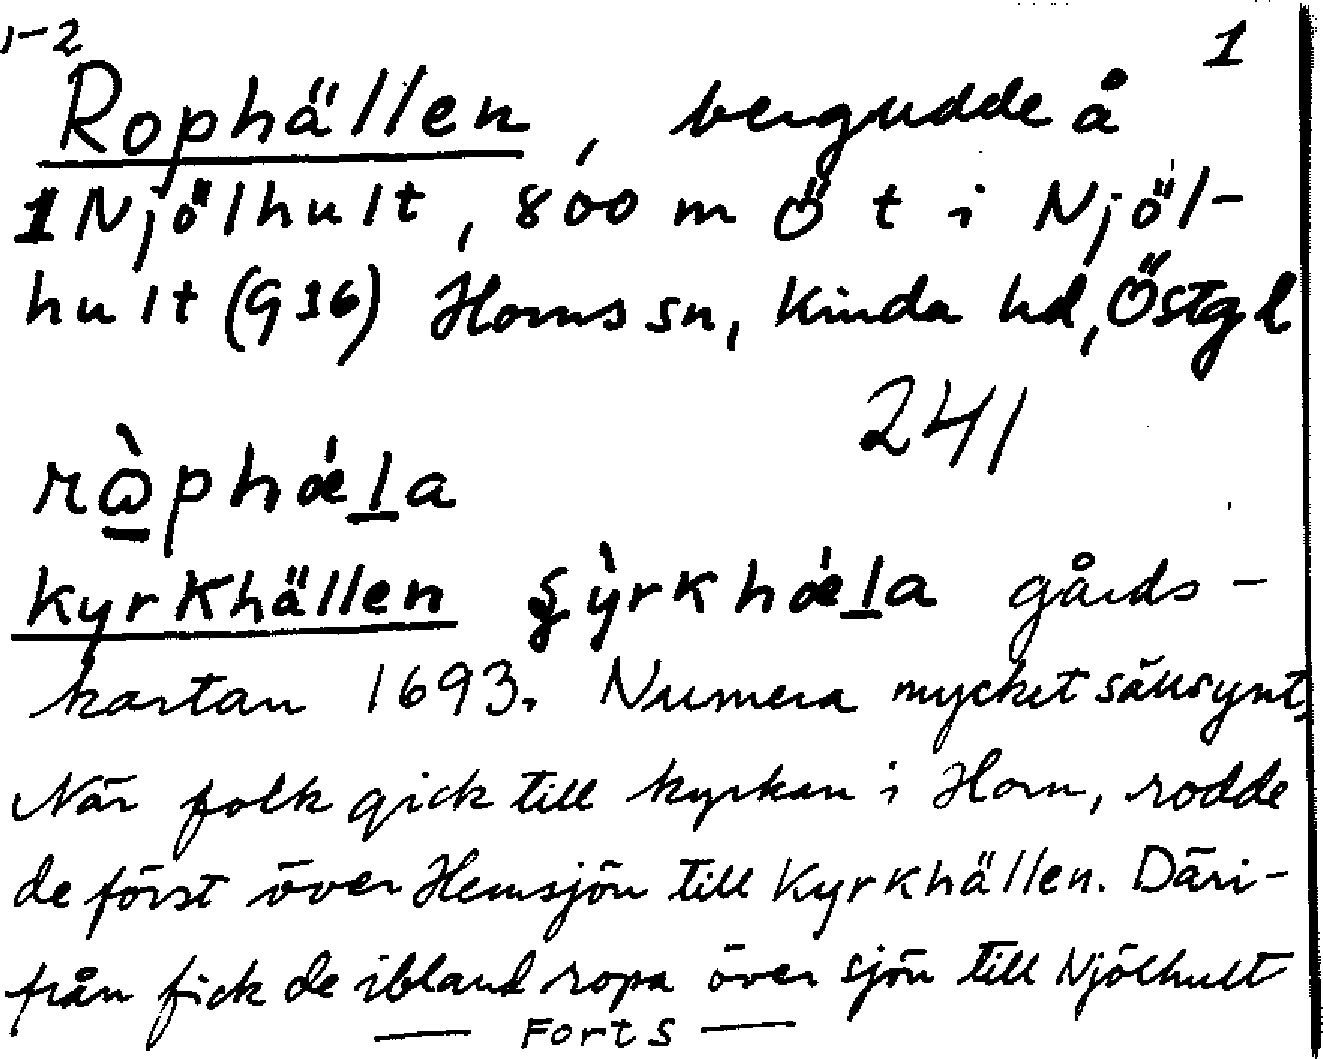 1-2 1
Rophällen, bergudde å
1 Njölhult, 800 m Ö t i Njöl-
hult (G36) Horns sn, Kinda hd, Östgl
241
kyrkhällen gårds-
kartan 1693. Numera mycket sällsynt,
När folk gick till kyrkan i Horn, rodde
de först över Hemsjön till Kyrkhällen. Däri-
från fick de ibland ropa över sjön till Njölhult
— Forts —